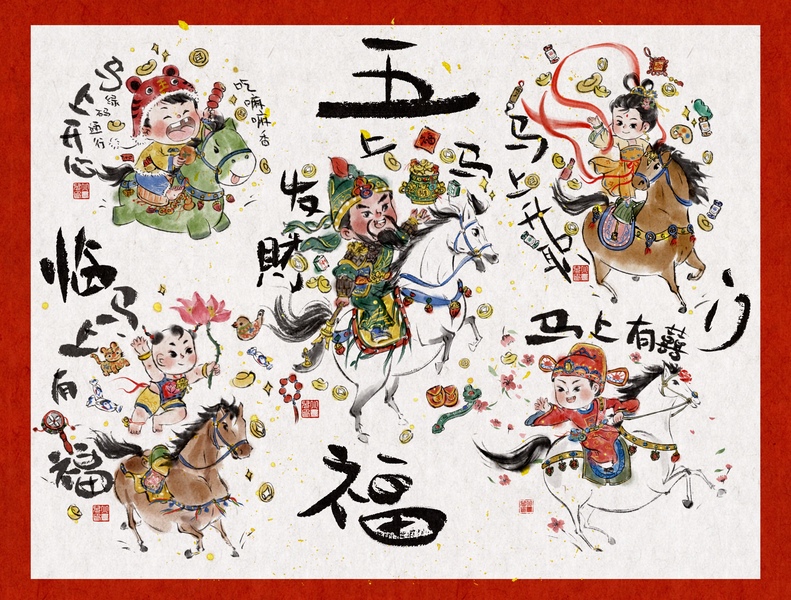 五
福
临
门
马上开心
绿码通行
吃嘛嘛香
马上发財
马上升职
马上有福
马上有囍